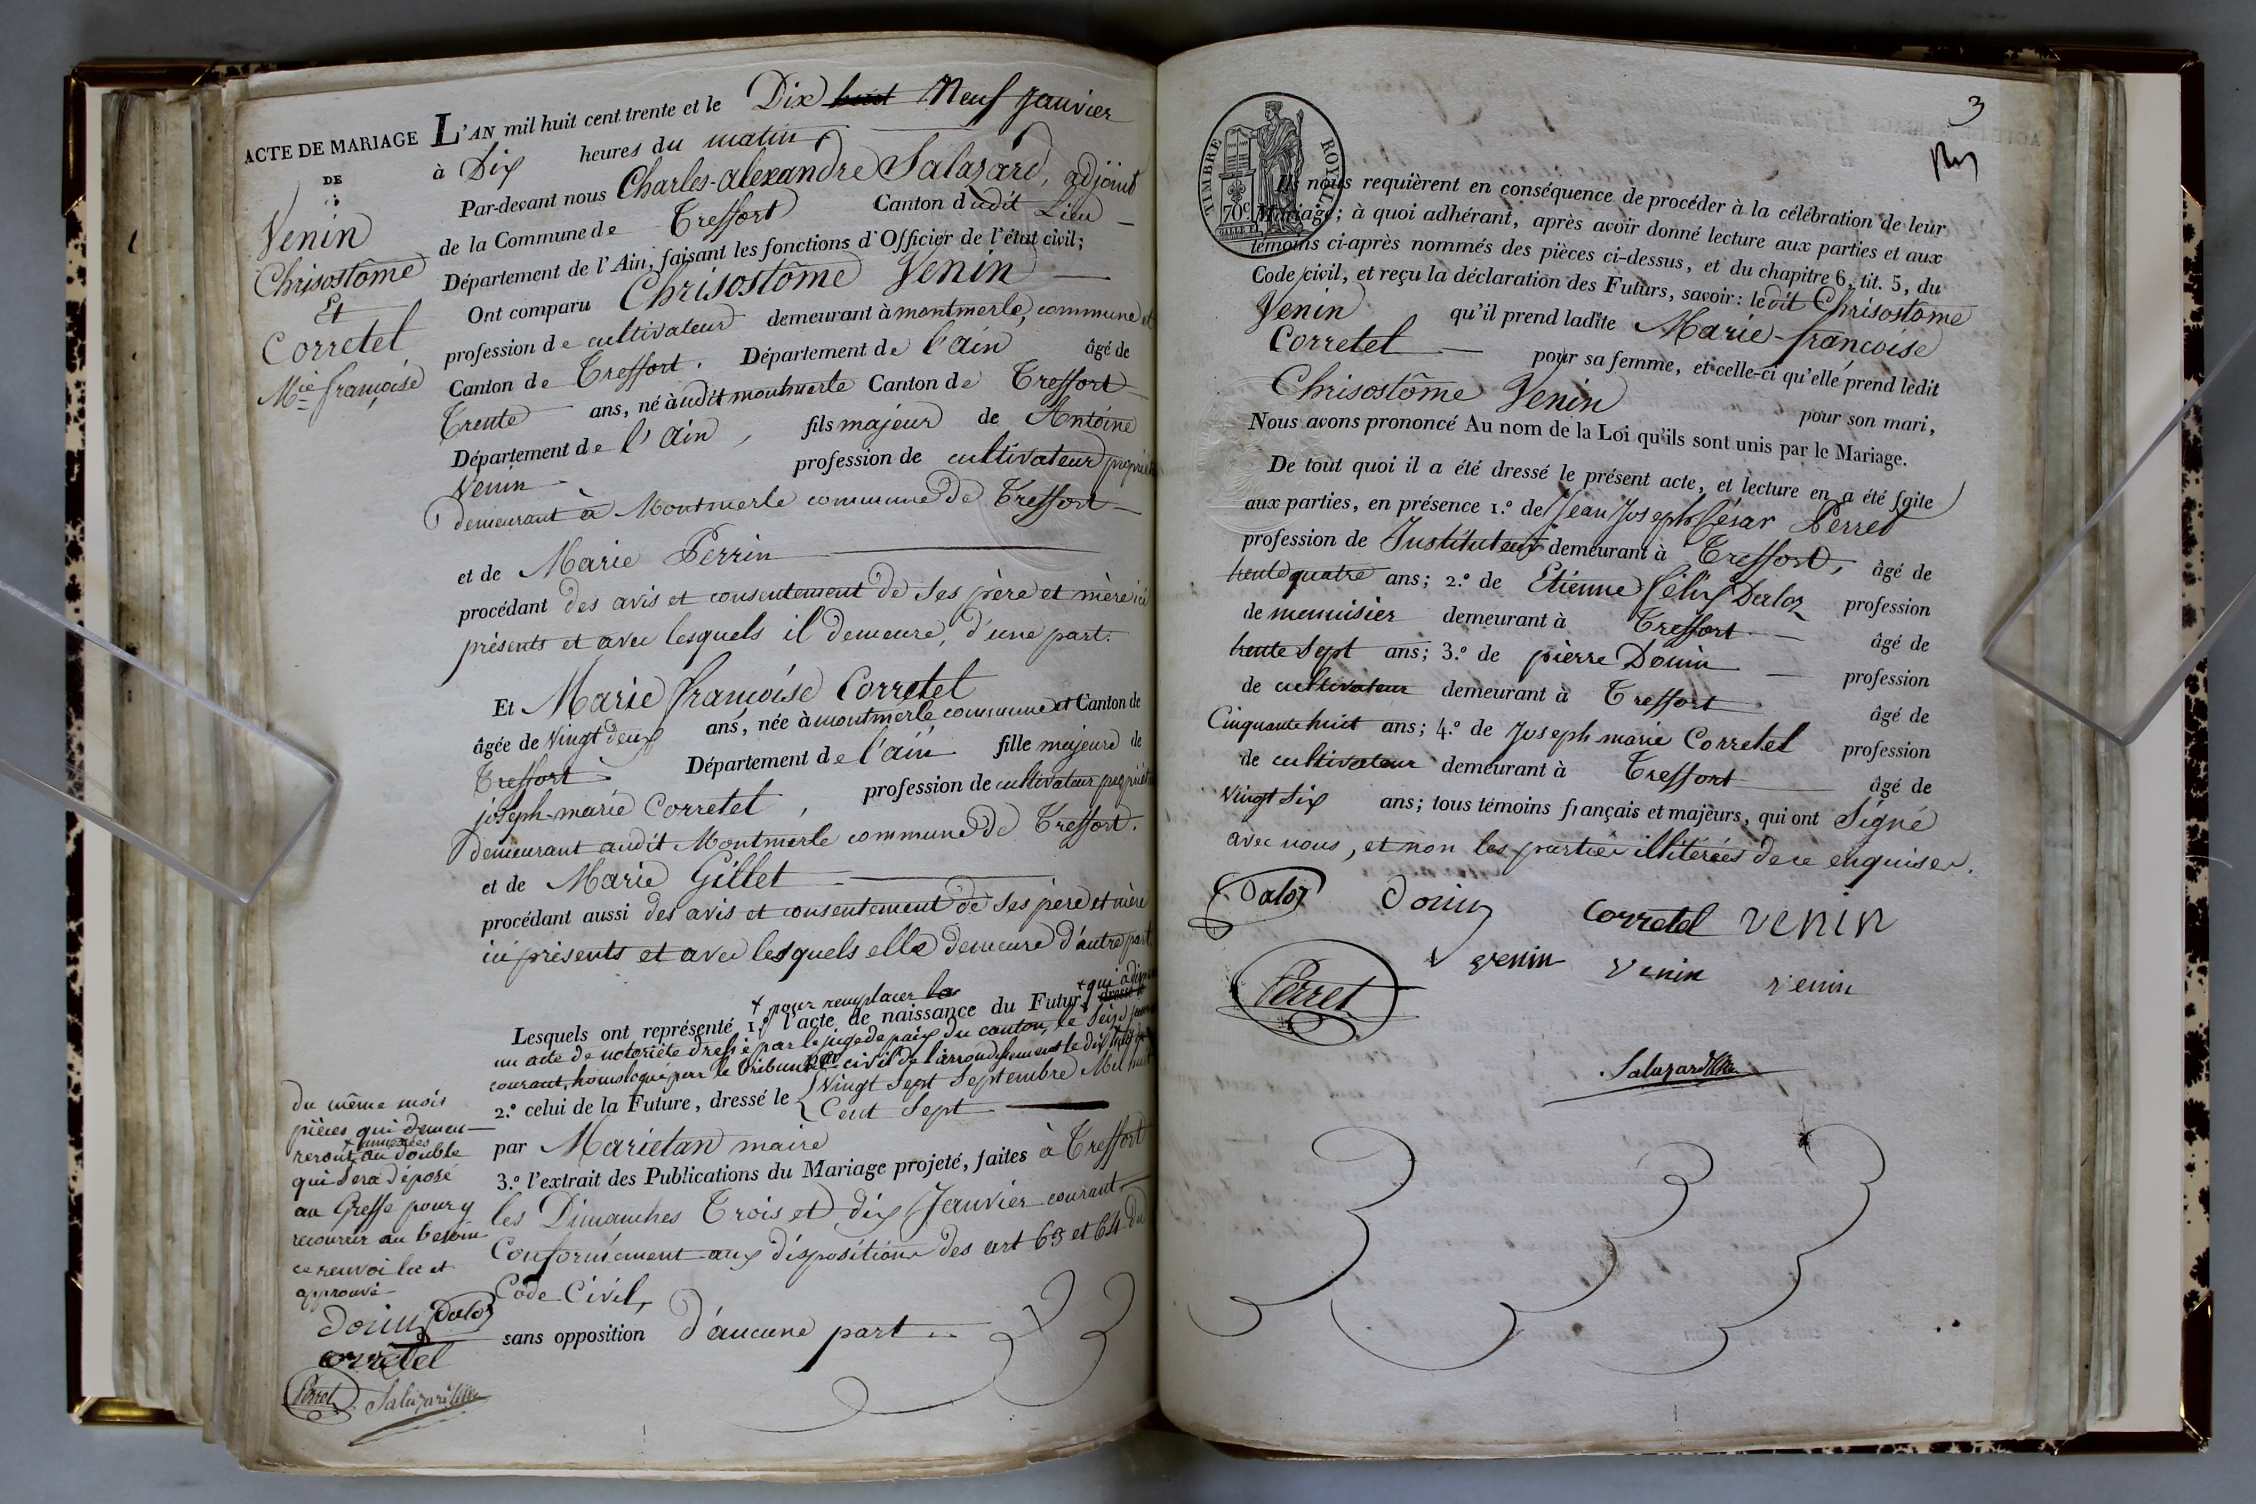 ACTE DE MARIAGE
DE
Venin
Chrisostôme
Et
Corretel
Mie françoise
L'AN mil huit cent trente et le Dix huit Neuf Janvier
à Dix heures du matin
Par-devant nous Charles-alexandre Salazard, adjoint
de la Commune de Treffort Canton dudit Lieu
Département de l'Ain, faisant les fonctions d'Officier de l'état civil;
Ont comparu Chrisostôme Venin
profession de cultivateur demeurant à montmerle, commune et
Canton de Treffort. Département de l'ain âgé de
Trente ans, né audit montmerle Canton de Treffort
Département de l'ain, fils majeur de Antoine
Venin profession de cultivateur
demeurant à Montmerle commune de Treffort
et de Marie Perrin
procédant des avis et consentement de ses père et mère ici
présents et avec lesquels il demeure, d'une part.
Et Marie françoise Corretel
âgée de vingt deux ans, née à montmerle commune et Canton de
Treffort Département de l'ain fille majeure de
joseph-marie Corretel, profession de cultivateur
demeurant audit Montmerle commune de Treffort.
et de Marie Gillet
procédant aussi des avis et consentement de ses père et mère
ici présents et avec lesquels elle demeure d'autre part
+ pour remplacer
Lesquels ont représenté 1.° l'acte de naissance du Futur,
un acte de notoriété dressé par le juge de paix du canton, le seize
courant, homologué par le Tribunal civil de l'arrondissement le dix
2.° celui de la Future, dressé le vingt sept septembre Mil huit
Cent Sept
par Marietan maire
3.° l'extrait des Publications du Mariage projeté, faites à Treffort
les Dimanches Trois et dix Janvier courant
Conformément aux dispositions des art 63 et 64 du
Code Civil,
sans opposition d'aucune part
du même mois
pièces qui demeu-
+ annexées
reront au double
qui sera déposé
au Greffe pour y
recourir au besoin
ce renvoi lu et
approuvé
Douin Daloz
Corretel
Perret Salazard
3
TIMBRE ROYAL
70c
Ils nous requièrent en conséquence de procéder à la célébration de leur
Mariage; à quoi adhérant, après avoir donné lecture aux parties et aux
témoins ci-après nommés des pièces ci-dessus, et du chapitre 6, tit. 5, du
Code civil, et reçu la déclaration des Futurs, savoir: ledit Chrisostôme
Venin qu'il prend ladite Marie-françoise
Corretel pour sa femme, et celle-ci qu'elle prend ledit
Chrisostôme Venin pour son mari,
Nous avons prononcé Au nom de la Loi qu'ils sont unis par le Mariage.
De tout quoi il a été dressé le présent acte, et lecture en a été faite
aux parties, en présence 1.° de Jean Joseph César Perret
profession de Instituteur demeurant à Treffort, âgé de
trente quatre ans; 2.° de Etienne félix Daloz profession
de menuisier demeurant à Treffort âgé de
trente sept ans; 3.° de pierre Douin profession
de cultivateur demeurant à Treffort âgé de
Cinquante huit ans; 4.° de Joseph marie Corretel profession
de cultivateur demeurant à Treffort âgé de
vingt six ans; tous témoins français et majeurs, qui ont Signé
avec nous, et non les parties illitérées de ce enquises.
Daloz Douin Corretel venin
Perret venin venin venin
Salazard